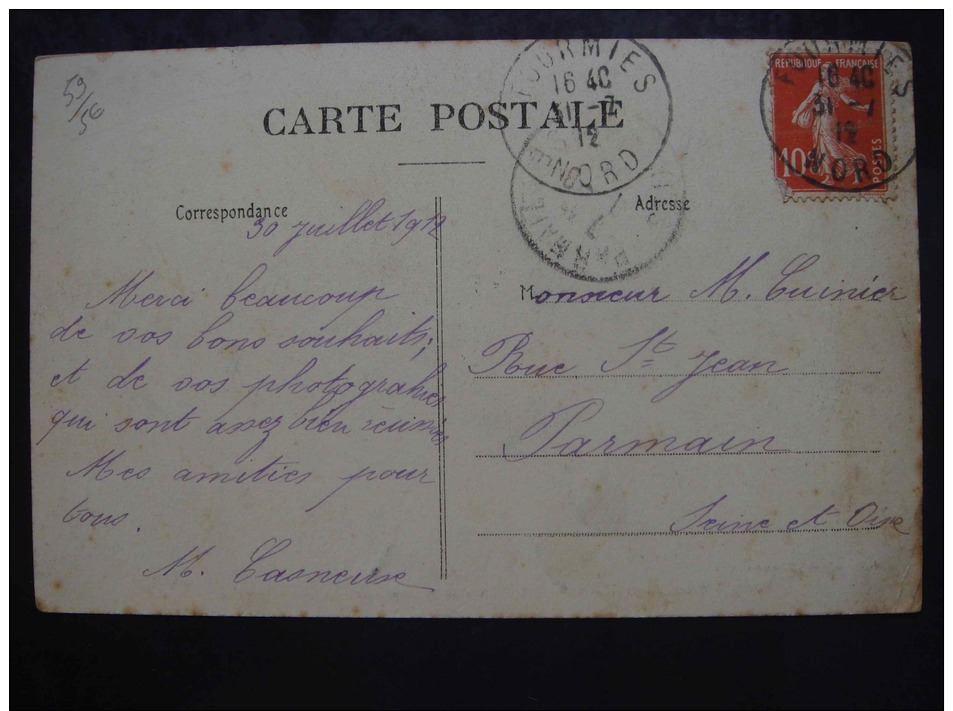 59/56
CARTE POSTALE
FOURMIES
16 40
31 -7
12
NORD
RÉPUBLIQUE FRANÇAISE
10c
POSTES
FOURMIES
16 40
31 -7
12
NORD
PARMAIN
Correspondance
30 juillet 1912
Merci beaucoup
de vos bons souhaits;
et de vos photograhies
qui sont assez bien réussies
Mes amitiés pour
tous.
M.
Adresse
Monsieur M. Cuinier
Rue St Jean
Parmain
Seine et Oise